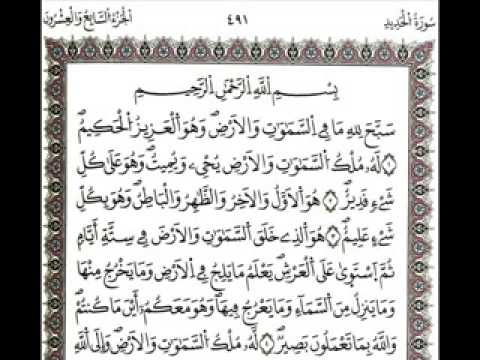 سُورَةُ الْحَدِيدِ ٤٩١ الجُزْءُ السَّابِعُ وَالْعِشْرُونَ
بِسْمِ اِللَّهِ اِلرَّحْمَٰنِ اِلرَّحِيمِ
سَبَّحَ لِلهِ مَا فِي اِلسَّمَٰوَٰتِ وَالَارْضِ وَهُوَ اَلْعَزِيزُ الْحَكِيمُ
١ لَهُ مُلْكُ السَّمَٰوَٰتِ وَالَارْضِ يُحْيِۦ وَيُمِيتُ وَهُوَ عَلَىٰ كُلِّ
شَےْءٍ قَدِيرٌ ٢ هُوَ اَلَاوَّلُ وَالَاخِرُ وَالظَّٰهِرُ وَالْبَاطِنُ وَهُوَ بِكُلِّ
شَےْءٍ عَلِيمٌ ٣ هُوَ اَلذِے خَلَقَ السَّمَٰوَٰتِ وَالَارْضَ فِي سِتَّةِ أَيَّامٖ
ثُمَّ اَسْتَوَىٰ عَلَى اَلْعَرْشِ يَعْلَمُ مَا يَلِجُ فِي اِلَارْضِ وَمَا يَخْرُجُ مِنْهَا
وَمَا يَنزِلُ مِنَ اَلسَّمَاءِ وَمَا يَعْرُجُ فِيهَا وَهُوَ مَعَكُمُ أَيْنَ مَا كُنتُمْ
وَاللَّهُ بِمَا تَعْمَلُونَ بَصِيرٌ ٤ لَّهُ مُلْكُ السَّمَٰوَٰتِ وَالَارْضِ وَإِلَى اَللَّهِ